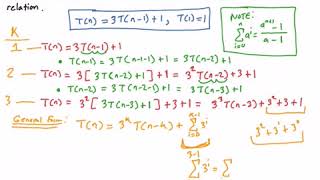 relation.
T(n) = 3T(n-1)+1, T(1)=1
NOTE:
n
Σ aⁱ = (aⁿ⁺¹ - 1)/(a - 1)
i=0
K
1 — T(n) = 3T(n-1)+1
• T(n-1) = 3T(n-1-1)+1 = 3T(n-2)+1
2 — T(n) = 3[3T(n-2)+1]+1 = 3²T(n-2)+3+1
• T(n-2) = 3T(n-2-1)+1 = 3T(n-3)+1
3 — T(n) = 3²[3T(n-3)+1]+3+1 = 3³T(n-3)+3²+3+1
General Form: T(n) = 3ᵏT(n-k)+
k-1
Σ 3ⁱ
i=0
3²+3¹+3⁰
3-1
Σ 3ⁱ = Σ